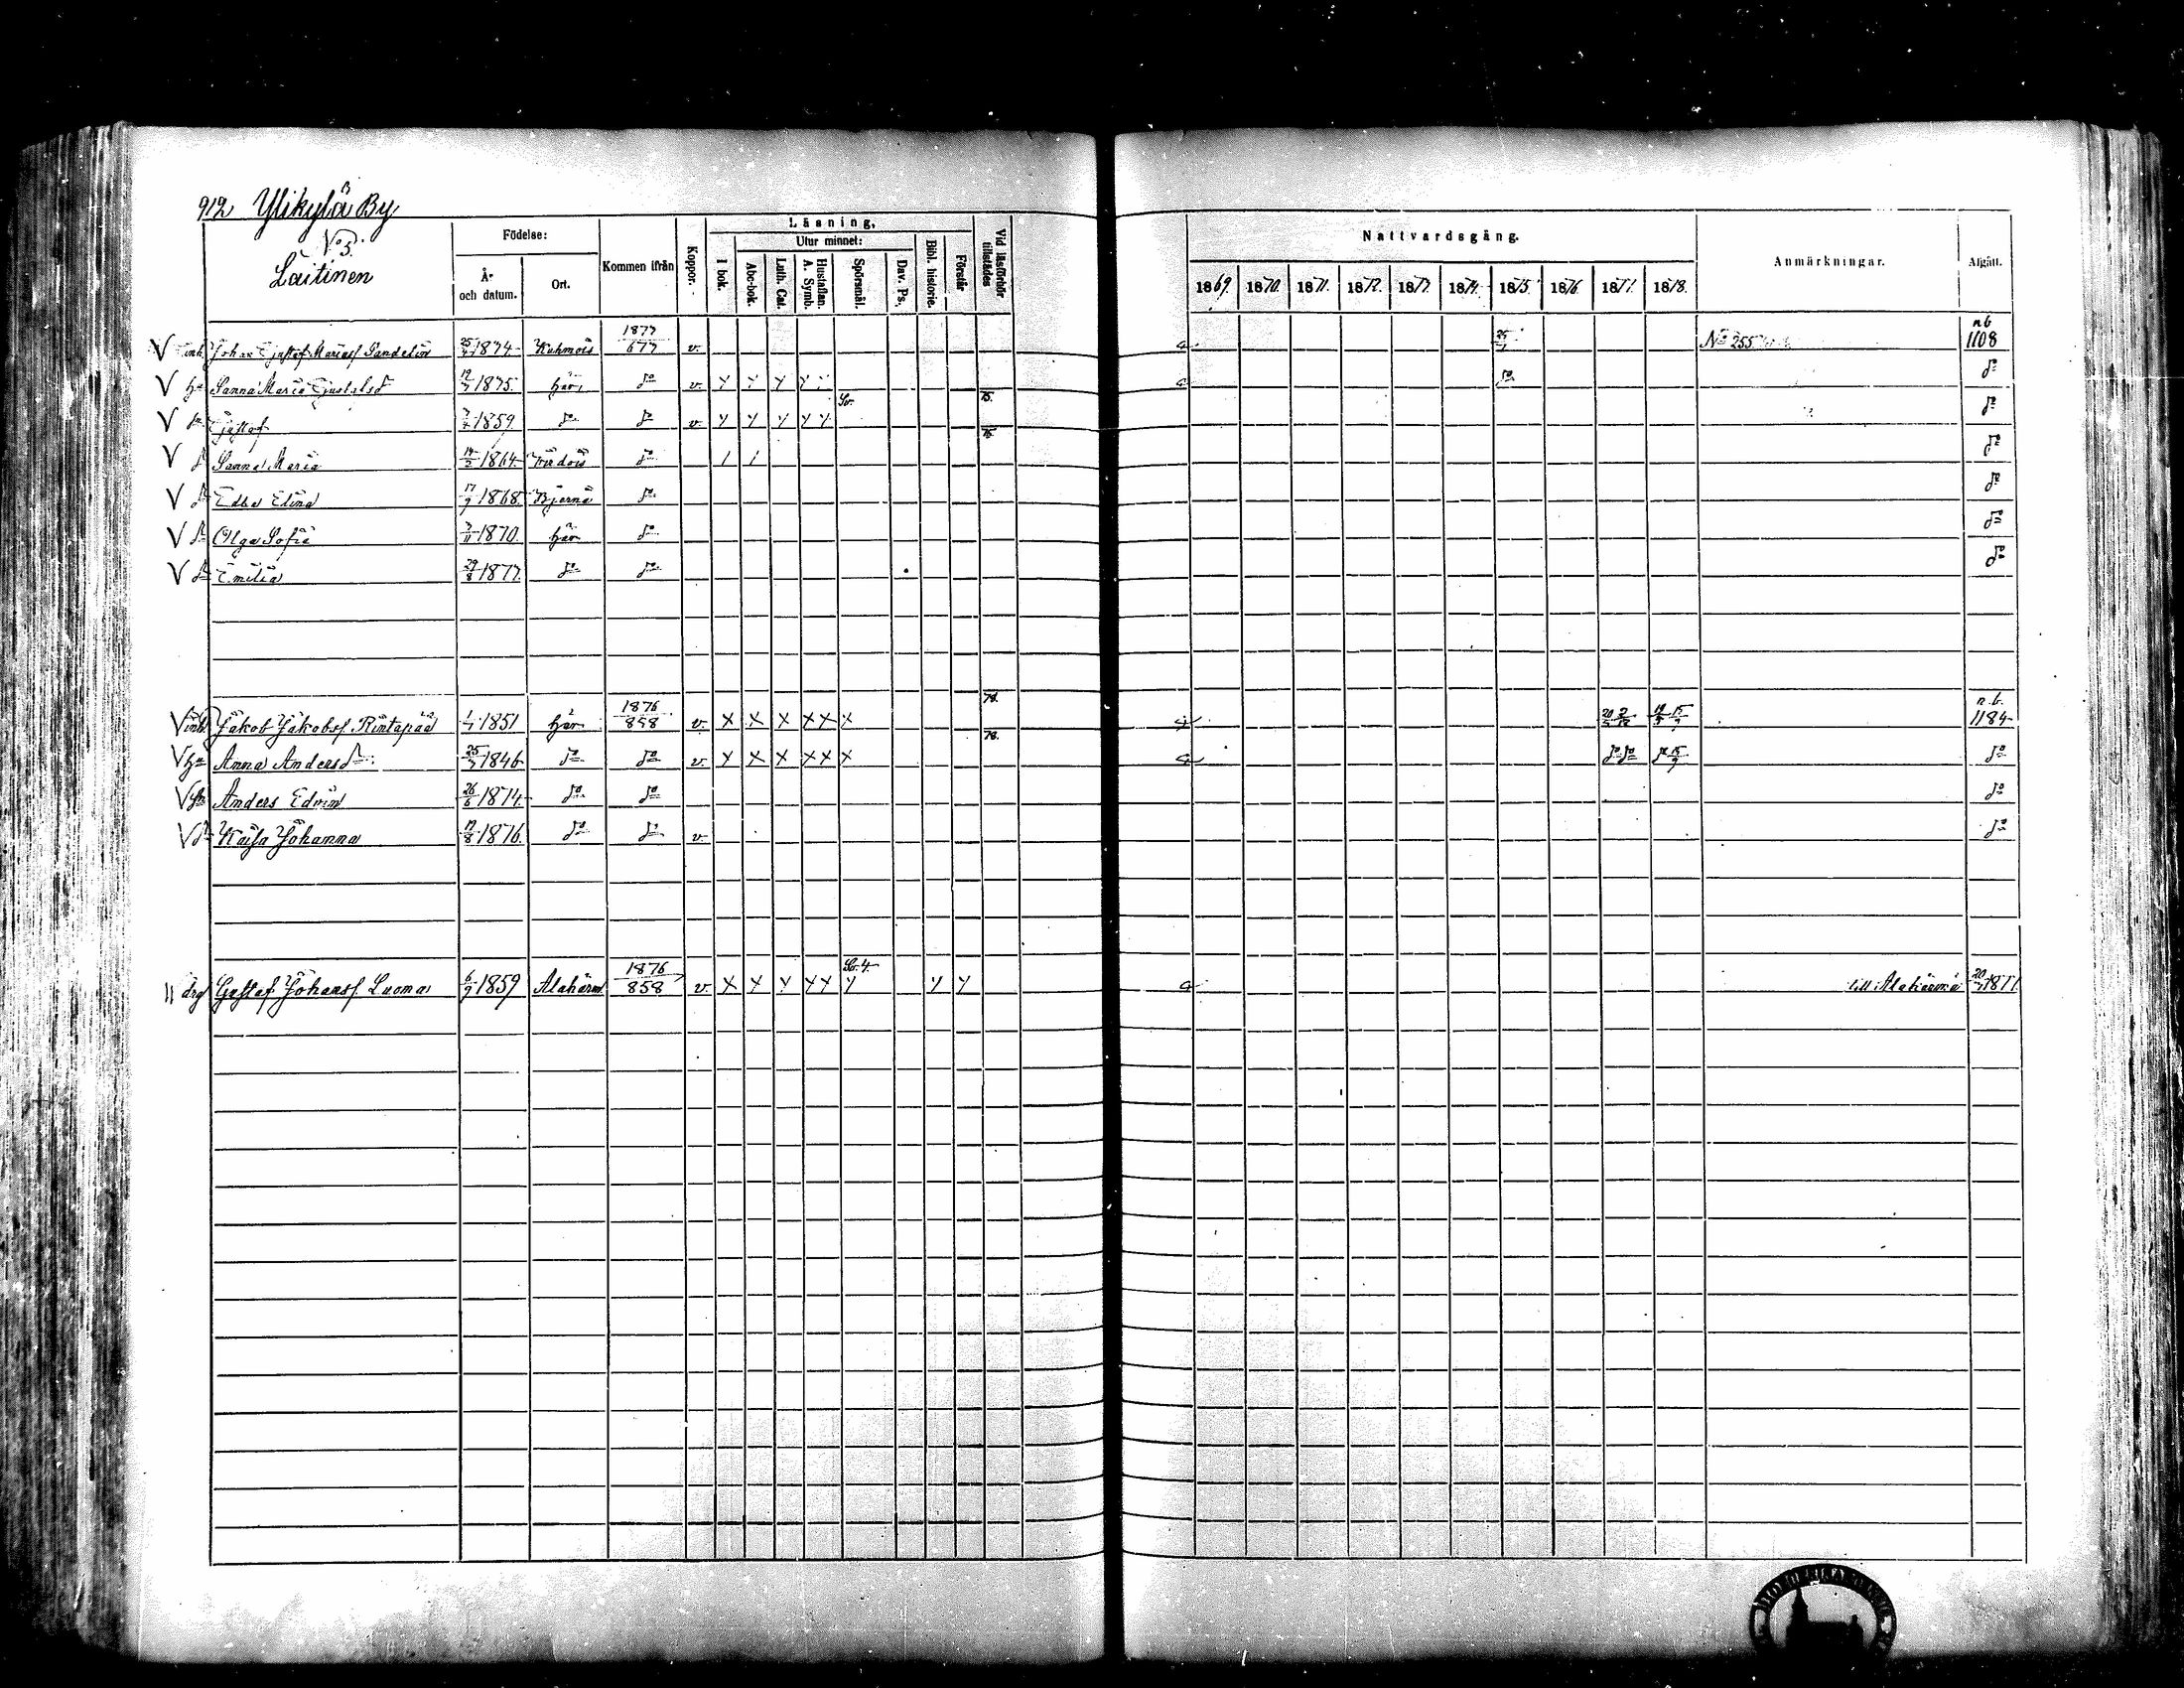 912 Ylikylä By
No 5.
Laitinen
Födelse:
År och datum.
Ort.
Kommen ifrån
Koppor.
Läsning,
I bok.
Utur minnet:
Abc-bok.
Luth. Cat.
Hustaflan. A. Symb.
Spörsmål.
Dav. Ps.
Bibl. historie.
Förstår
Vid läsförhör tillstädes
Nattvardsgång.
1869. 1870. 1871. 1872. 1873. 1874. 1875. 1876. 1877. 1878.
Anmärkningar.
Afgått.
V inh. Johan Gustaf Mariasf Sandelin 1834 Kuhmois 1877/677 v. No 255 n.b 1108
V h. Sanna Maria Gustafsd 1835 här do v. Y Y Y Y Y do do
V Gustaf 1859 do do v. Y Y Y Y Y Sv. 75. do
V Sanna Maria 14/2 1864 do 76. do
V Edla Elina 17/9 1868. Bjerna do do
V Olga Sofia 3/11 1870. här do do
V Emilia 29/8 1877. do do do
V inh. Jakob Jakobsf. Rintapää 1851 här 1876/858 v. X X X X X X 78. n.b. 1184
V h. Anna Andersd 1846 do do v. X X X X X X 78. do do do 15/9 do
V Sn Anders Edvin 26/6 1874 do do do
V Kajsa Johanna 1876. do do v. do
drg Gustaf Johansf. Luoma 6/9 1859 Alahärm 1876/858 v. X Y Y Y Y Y Sv. 4. Y Y till Alahärmä 1877.